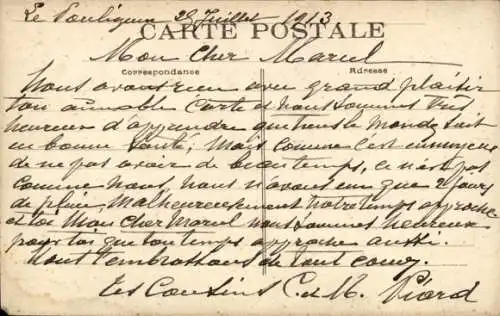 Le Pouliguen 25 Juillet 1913
CARTE POSTALE
Mon Cher Marcel
Correspondance Adresse
Nous avons reçu avec grand plaisir
ton aimable Carte et nous sommes très
heureux d'apprendre que tous le monde soit
en bonne Santé, Mais comme c'est ennuyeux
de ne pas avoir de beau temps, ce n'est pas
comme nous nous n'avons eu que 2 jours
de pluie, Malheureusement notre temps approche
et toi Mon Cher Marcel nous sommes heureux
pour toi que ton temps approche aussi.
Nous t'embrassons de tout coeur,
Tes Cousins C. et M. Piard